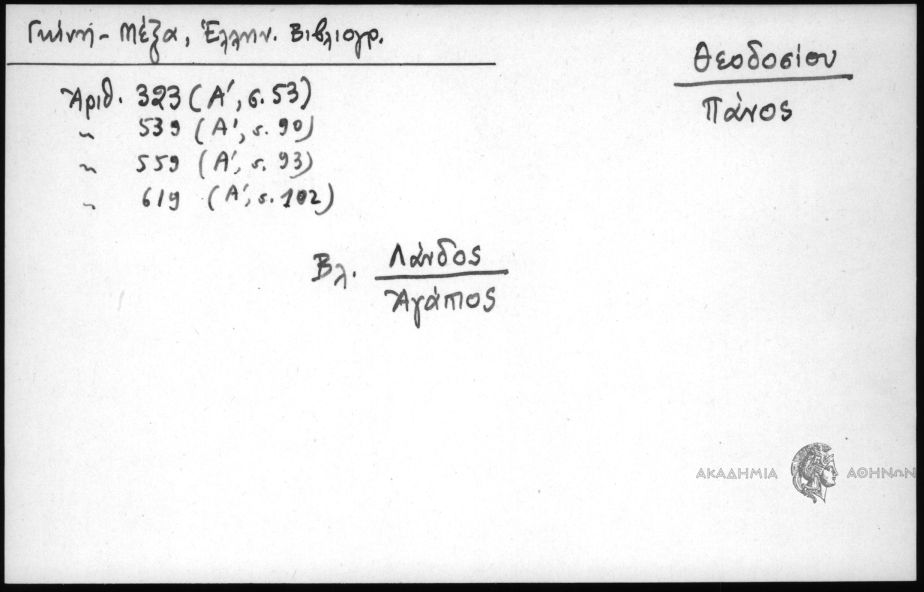 Γκίνη - Μέξα, Ἑλλην. Βιβλιογρ.
Θεοδοσίου
Πάνος
Ἀριθ. 323 (Α', σ. 53)
" 539 (Α', σ. 90)
" 559 (Α', σ. 93)
" 619 (Α', σ. 102)
Βλ. Λάνδος
Ἀγάπιος
ΑΚΑΔΗΜΙΑ ΑΘΗΝΩΝ